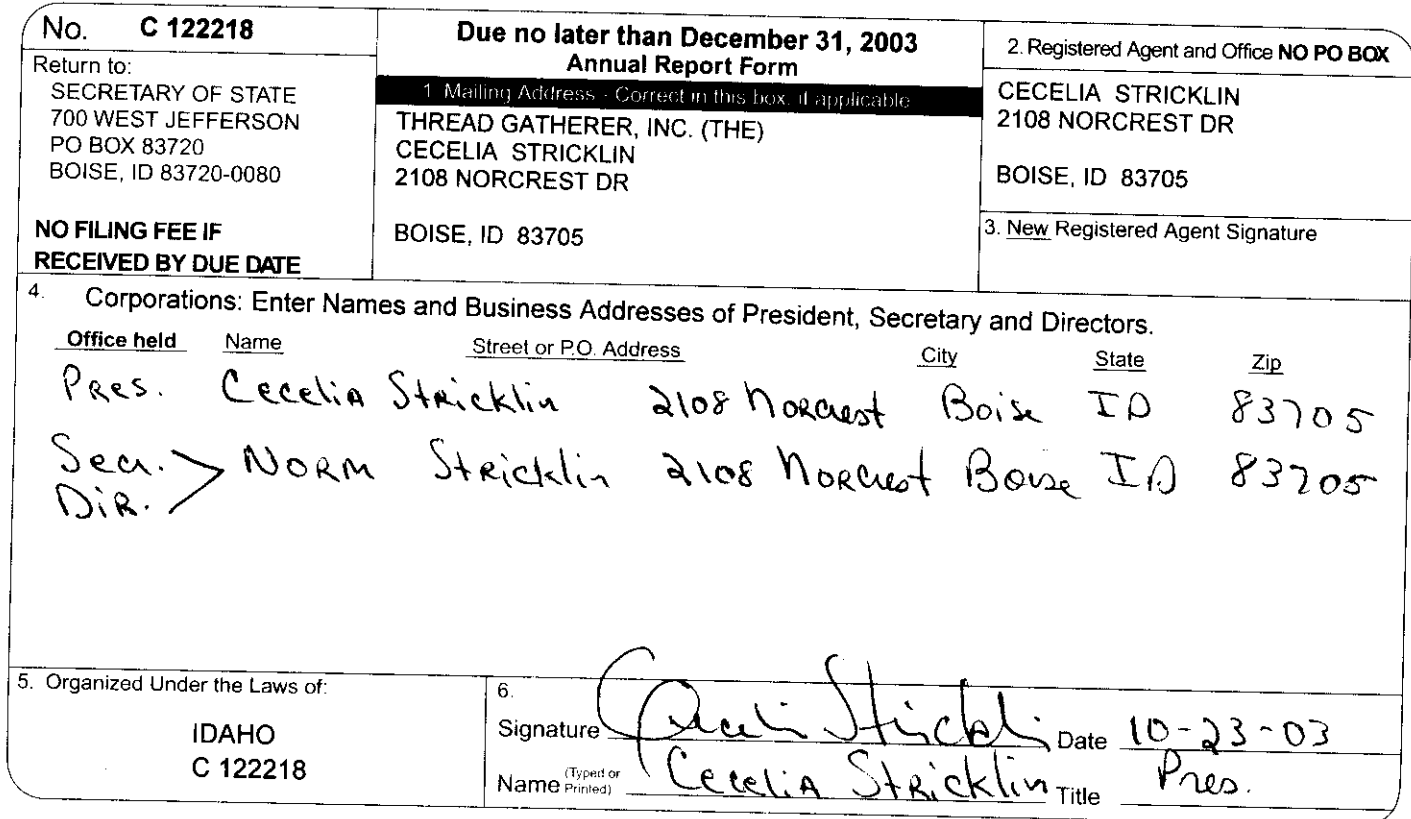 No. C 122218
Return to:
SECRETARY OF STATE
700 WEST JEFFERSON
PO BOX 83720
BOISE, ID 83720-0080
NO FILING FEE IF
RECEIVED BY DUE DATE
Due no later than December 31, 2003
Annual Report Form
1. Mailing Address - Correct in this box, if applicable
THREAD GATHERER, INC. (THE)
CECELIA STRICKLIN
2108 NORCREST DR
BOISE, ID 83705
2. Registered Agent and Office NO PO BOX
CECELIA STRICKLIN
2108 NORCREST DR
BOISE, ID 83705
3. New Registered Agent Signature
4. Corporations: Enter Names and Business Addresses of President, Secretary and Directors.
Office held Name Street or P.O. Address City State Zip
Pres. Cecelia Stricklin 2108 Norcrest Boise ID 83705
Secr. > Norm Stricklin 2108 Norcrest Boise ID 83705
Dir.
5. Organized Under the Laws of:
IDAHO
C 122218
6.
Signature Cecelia Stricklin Date 10-23-03
Name (Typed or Printed) Cecelia Stricklin Title Pres.